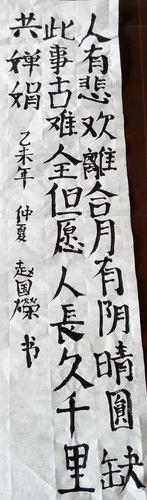 人有悲欢離合月有阴晴圓缺
此事古难全但愿人長久千里
共婵娟
乙未年 仲夏 赵国榮 书